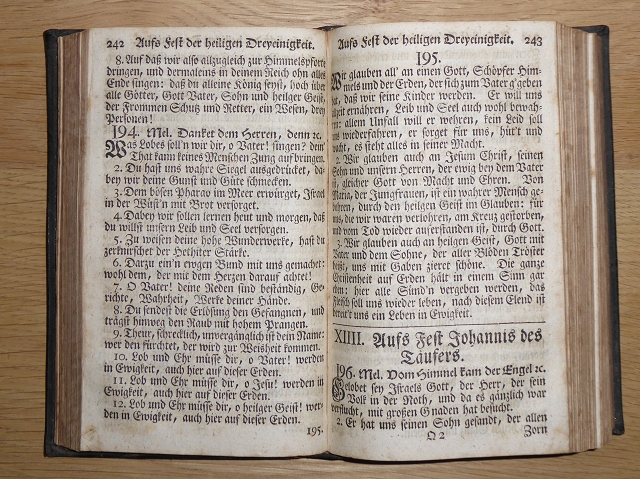 242 Aufs Fest der heiligen Dreyeinigkeit.
8. Auf daß wir also allzugleich zur Himmelspforte
dringen, und dermaleins in deinem Reich ohn alles
Ende singen: daß du alleine König seyst, hoch über
alle Götter, Gott Vater, Sohn und heilger Geist,
der Frommen Schutz und Retter, ein Wesen, drey
Personen!
194. Mel. Danket dem Herren, denn ꝛc.
Was Lobes soll'n wir dir, o Vater! singen? dein'
That kann keines Menschen Zung aufbringen.
2. Du hast uns wahre Siegel ausgedrücket, da-
bey wir deine Gunst und Güte schmecken.
3. Dem bösen Pharao im Meer erwürget, Israel
in der Wüst'n mit Brot versorget.
4. Dabey wir sollen lernen heut und morgen, daß
du willst unsern Leib und Seel versorgen.
5. Zu weisen deine hohe Wunderwerke, hast du
zerknirschet der Hethiter Stärke.
6. Darzu ein'n ewgen Bund mit uns gemachet:
wohl dem, der mit dem Herzen darauf achtet!
7. O Vater! deine Reden sind beständig, Ge-
richte, Wahrheit, Werke deiner Hände.
8. Du sendest die Erlösung den Gefangnen, und
trägst hinweg den Raub mit hohem Prangen.
9. Theur, schrecklich, unvergänglich ist dein Name:
wer den fürchtet, der wird zur Weisheit kommen.
10. Lob und Ehr müsse dir, o Vater! werden
in Ewigkeit, auch hier auf dieser Erden.
11. Lob und Ehr müsse dir, o Jesu! werden in
Ewigkeit, auch hier auf dieser Erden.
12. Lob und Ehr müsse dir, o heilger Geist! wer-
den in Ewigkeit, auch hier auf dieser Erden.
195.
Aufs Fest der heiligen Dreyeinigkeit. 243
195.
Wir glauben all' an einen Gott, Schöpfer Him-
mels und der Erden, der sich zum Vater g'geben
hat, daß wir seine Kinder werden. Er will uns
allzeit ernähren, Leib und Seel auch wohl bewah-
ren: allem Unfall will er wehren, kein Leid soll
uns wiederfahren, er sorget für uns, hüt't und
wacht, es steht alles in seiner Macht.
2. Wir glauben auch an Jesum Christ, seinen
Sohn und unsern Herren, der ewig bey dem Vater
ist, gleicher Gott von Macht und Ehren. Von
Maria, der Jungfrauen, ist ein wahrer Mensch ge-
bohren, durch den heiligen Geist im Glauben: für
uns, die wir waren verlohren, am Kreuz gestorben,
und vom Tod wieder auferstanden ist, durch Gott.
3. Wir glauben auch an heilgen Geist, Gott mit
Vater und dem Sohne, der aller Blöden Tröster
heißt, uns mit Gaben zieret schöne. Die ganze
Christenheit auf Erden hält in einem Sinn gar
eben: hier alle Sünd'n vergeben werden, das
Fleisch soll uns wieder leben, nach diesem Elend ist
bereit't uns ein Leben in Ewigkeit.
XIIII. Aufs Fest Johannis des
Täufers.
196. Mel. Vom Himmel kam der Engel ꝛc.
Gelobet sey Israels Gott, der Herr, der sein
Volk in der Noth, und da es gänzlich war
versucht, mit großen Gnaden hat besucht.
2. Er hat uns seinen Sohn gesandt, der allen
Q 2 Zorn